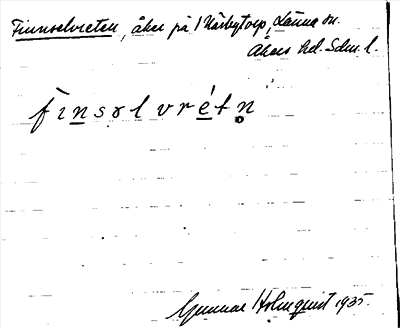 Finnselvreten, åker på 1 Närbytorp, Länna sn.
Åkers hd. Sdm. l.
fìnsəlvrétn̥
Gunnar Holmquist 1935.